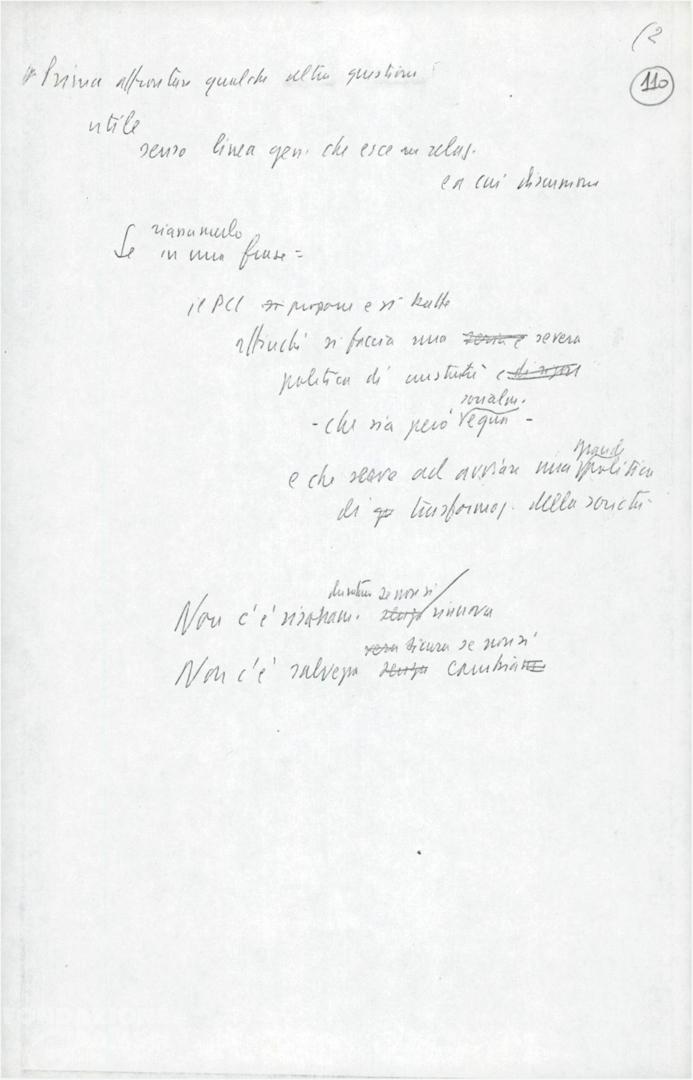 (2
110
Prima affrontare qualche altra questione
utile
senso linea gen. che esce da relaz.
e da cui discussione
Se riassumerlo
in una frase =
il PCI si propone e si batte
affinché si faccia una severa
politica di austerità e di rigore
socialm.
- che sia però equa -
grande
e che serva ad avviare una politica
di trasformaz. della società
duratura se non si
Non c'è risanam. senza rinnova
vera sicura se non si
Non c'è salvezza senza cambia
FONDAZIONE